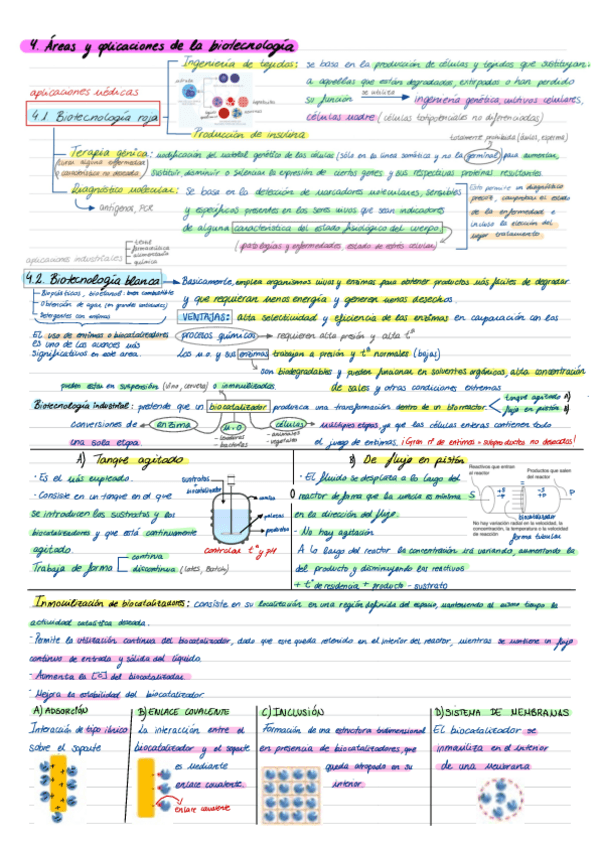 4. Áreas y aplicaciones de la biotecnología
Ingeniería de tejidos: se basa en la producción de células y tejidos que sustituyan
a aquellos que están degradados, extirpados o han perdido
su función se utiliza ingeniería genética, cultivos celulares,
células madre (células totipotenciales no diferenciadas)
aplicaciones médicas
4.1. Biotecnología roja
Producción de insulina
totalmente prohibida (óvulos, esperma)
Terapia génica: modificación del material genético de las células (sólo en la línea somática y no la germinal) para aumentar,
sustituir, disminuir o silenciar la expresión de ciertos genes y sus respectivas proteínas resultantes
Diagnóstico molecular: se basa en la detección de marcadores moleculares, sensibles
antígenos, PCR
y específicos presentes en los seres vivos que sean indicadores
de alguna característica del estado fisiológico del cuerpo.
(patologías y enfermedades, estado de estrés celular)
Esto permite un diagnóstico
precoz, comprobar el estado
de la enfermedad e
incluso la elección del
mejor tratamiento.
aplicaciones industriales
textil
farmacéutica
alimentaria
química
4.2. Biotecnología blanca
Basicamente, emplea organismos vivos y enzimas para obtener productos más fáciles de degradar
y que requieran menos energía y generen menos desechos.
Bioplásticos, bioetanol: buen combustible
Obtención de agua (en grandes cantidades)
Detergentes con enzimas
VENTAJAS: alta selectividad y eficiencia de las enzimas en comparación con los
procesos químicos requieren alta presión y alta tª
El uso de enzimas o biocatalizadores
es uno de los avances más
significativos en este area.
Los m.o. y sus enzimas trabajan a presión y tª normales (bajas)
son biodegradables y pueden funcionar en solventes orgánicos, alta concentración
de sales y otras condiciones extremas
pueden estar en suspensión (vino, cerveza) o inmovilizados.
Biotecnología industrial: pretende que un biocatalizador produzca una transformación dentro de un biorreactor.
tanque agitado A)
flujo en pistón B)
conversiones de una sola etapa
enzima
m.o
levaduras
bacterias
células
animales
vegetales
múltiples etapas, ya que las células enteras contienen todo
el juego de enzimas. ¡Gran nº de enzimas = subproductos no deseados!
A) Tanque agitado
· Es el más empleado.
· Consiste en un tanque en el que
se introducen los sustratos y los
biocatalizadores y que está continuamente
agitado.
Trabaja de forma
continua
discontinua (lotes, Batch)
sustratos
biocatalizador
paletas
productos
controlar tª y pH
B) De flujo en pistón
· El fluido se desplaza a lo largo del
reactor de forma que la mezcla es mínima
en la dirección del flujo.
- No hay agitación
A lo largo del reactor la concentración irá variando, aumentando la
del producto y disminuyendo los reactivos
+ tº de residencia + producto - sustrato
Reactivos que entran
al reactor
Productos que salen
del reactor
S
P
biocatalizador
No hay variación radial en la velocidad, la
concentración, la temperatura o la velocidad
de reacción
forma tubular
Inmovilización de biocatalizadores: consiste en su localización en una región definida del espacio, manteniendo al mismo tiempo la
actividad catalítica deseada.
· Permite la utilización continua del biocatalizador, dado que este queda retenido en el interior del reactor, mientras se mantiene un flujo
continuo de entrada y salida del líquido.
· Aumenta la [C] del biocatalizador
· Mejora la estabilidad del biocatalizador
A) ADSORCIÓN
Interacción de tipo iónico
sobre el soporte
B) ENLACE COVALENTE
La interacción entre el
biocatalizador y el soporte
es mediante
enlace covalente.
enlace covalente
C) INCLUSIÓN
Formación de una estructura tridimensional
en presencia de biocatalizadores, que
queda atrapado en su
interior
D) SISTEMA DE MEMBRANAS
El biocatalizador se
inmoviliza en el interior
de una membrana